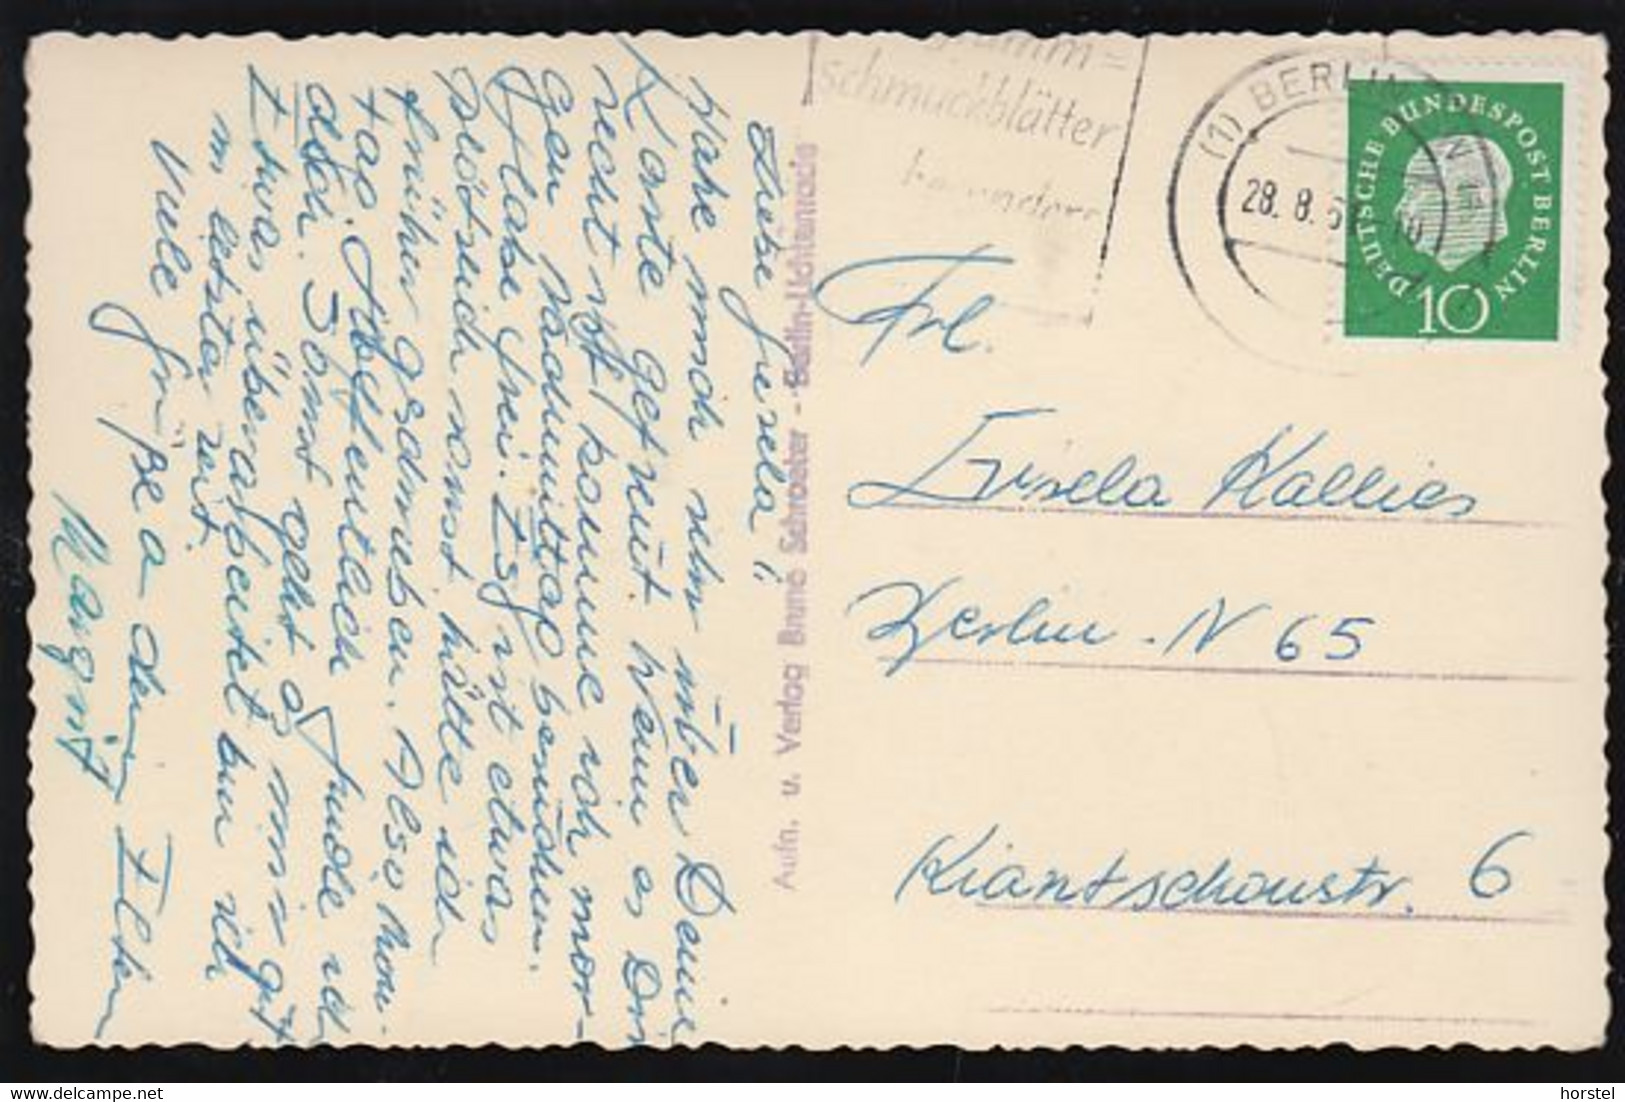 Liebe Gisela!
Habe mich sehr über Deine
Karte gefreut. Wenn es Dir
recht ist, komme ich mor-
gen Nachmittag besuchen.
Habe frei. Es ist etwas
plötzlich sonst hätte ich
früher geschrieben. Also Mon-
tag. Hoffentlich finde ich
dich. Sonst geht es mir gut
Etwas überarbeitet bin ich
in letzter Zeit.
Viele Grüße a dein Eltern
Margrit
Aufn. u. Verlag Bruno Schroeter - Berlin-Lichtenrade
schmuckblätter
(1) BERLIN
28. 8. 6
DEUTSCHE BUNDESPOST BERLIN
10
Frl.
Gisela Kallies
Berlin - N 65
Kiautschoustr. 6